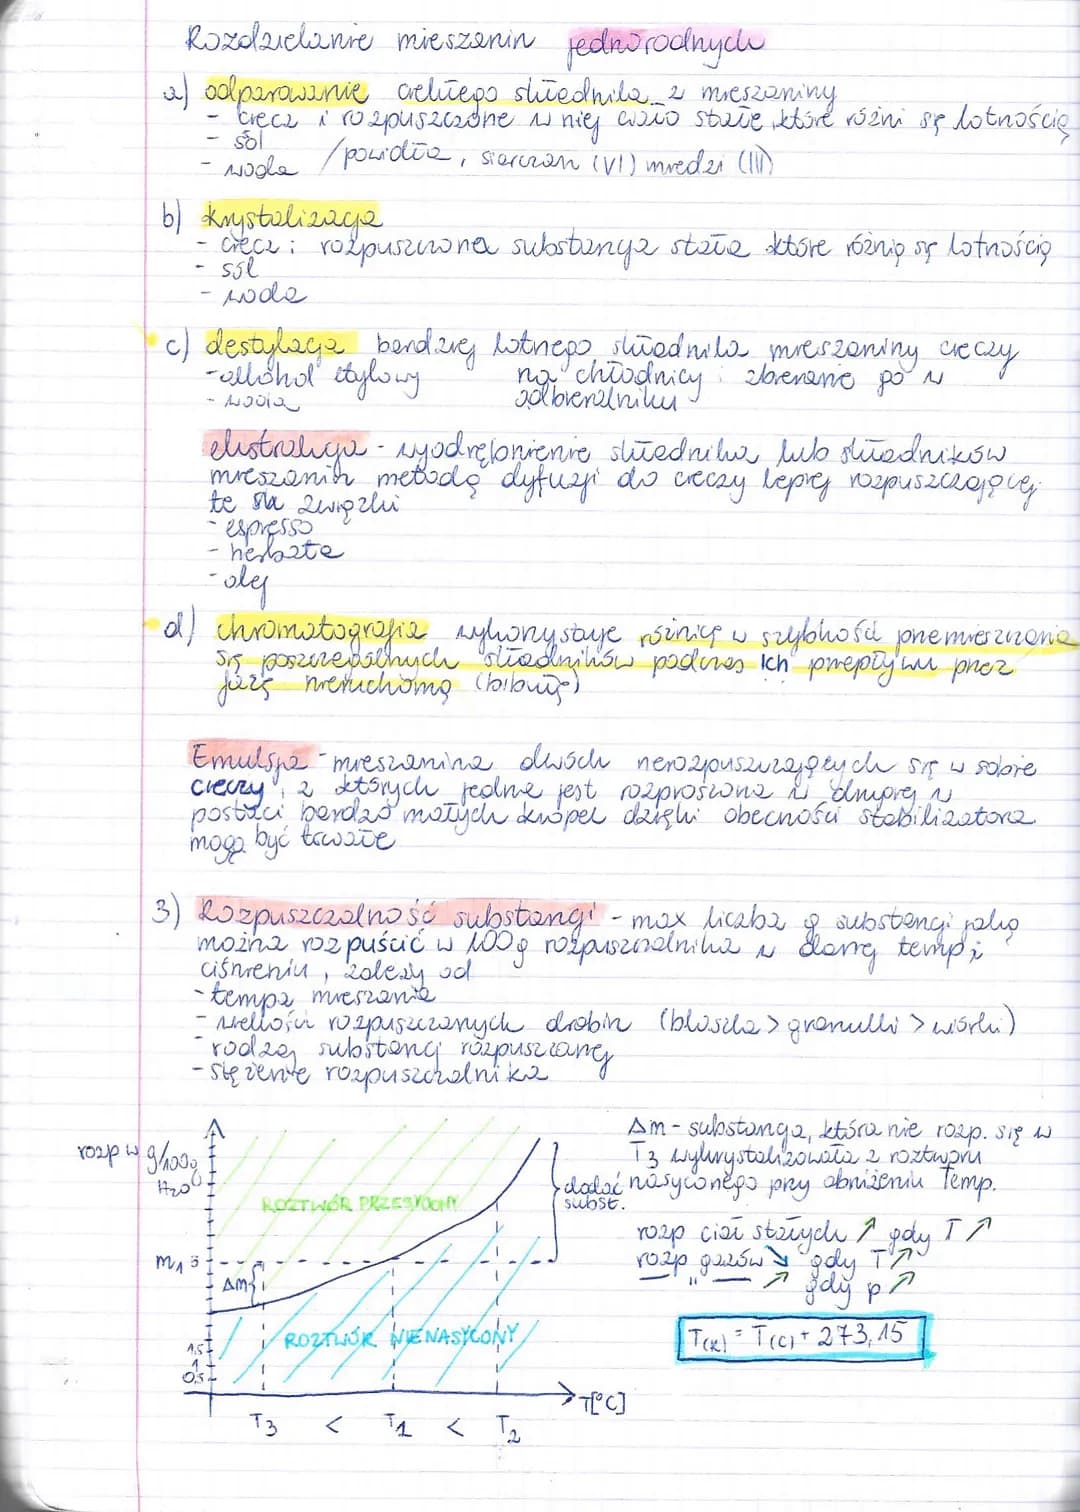 Rozdzielanie mieszanin jednorodnych
a) odparowanie ciekłego składnika z mieszaniny
- ciecz i rozpuszczone w niej ciało stałe, które różni się lotnością
- sól
- woda / powidła, siarczan (VI) miedzi (III)
b) krystalizacja
- ciecz i rozpuszczona substancja stała które różnią się lotnością
- sól
- woda
c) destylacja bardziej lotnego składnika mieszaniny cieczy
- alkohol etylowy na chłodnicy i zbieranie go w
- woda odbieralniku
ekstrakcja - wyodrębnienie składnika lub składników
mieszanin metodą dyfuzji do cieczy lepiej rozpuszczającej
te związki
- espresso
- herbata
- olej
d) chromatografia wykorzystuje różnicę w szybkości przemieszczania
się poszczególnych składników podczas ich przepływu przez
fazę nieruchomą (bibułę)
Emulsja - mieszanina dwóch nierozpuszczających się w sobie
cieczy, z których jedna jest rozproszona w drugiej w
postaci bardzo małych kropel dzięki obecności stabilizatora
mogą być trwałe
3) Rozpuszczalność substancji - max liczba g substancji jaką
można rozpuścić w 100g rozpuszczalnika w danej temp i
ciśnieniu, zależy od
- tempa mieszania
- wielkości rozpuszczanych drobin (kostka > granulki > wiórki)
- rodzaj substancji rozpuszczanej
- stężenie rozpuszczalnika
rozp w g/100g
H2O
ROZTWÓR PRZESYCONY
m1 3
Δm
ROZTWÓR NIENASYCONY
1,5
1
0,5
T3 < T1 < T2
T[°C]
dodać
subst.
Δm - substancja, która nie rozp. się w
T3 wykrystalizowała z roztworu
nasyconego przy obniżeniu temp.
rozp ciał stałych ↗ gdy T ↗
rozp gazów ↘ gdy T ↗
— " — ↗ gdy p ↗
T(K) = T(C) + 273,15